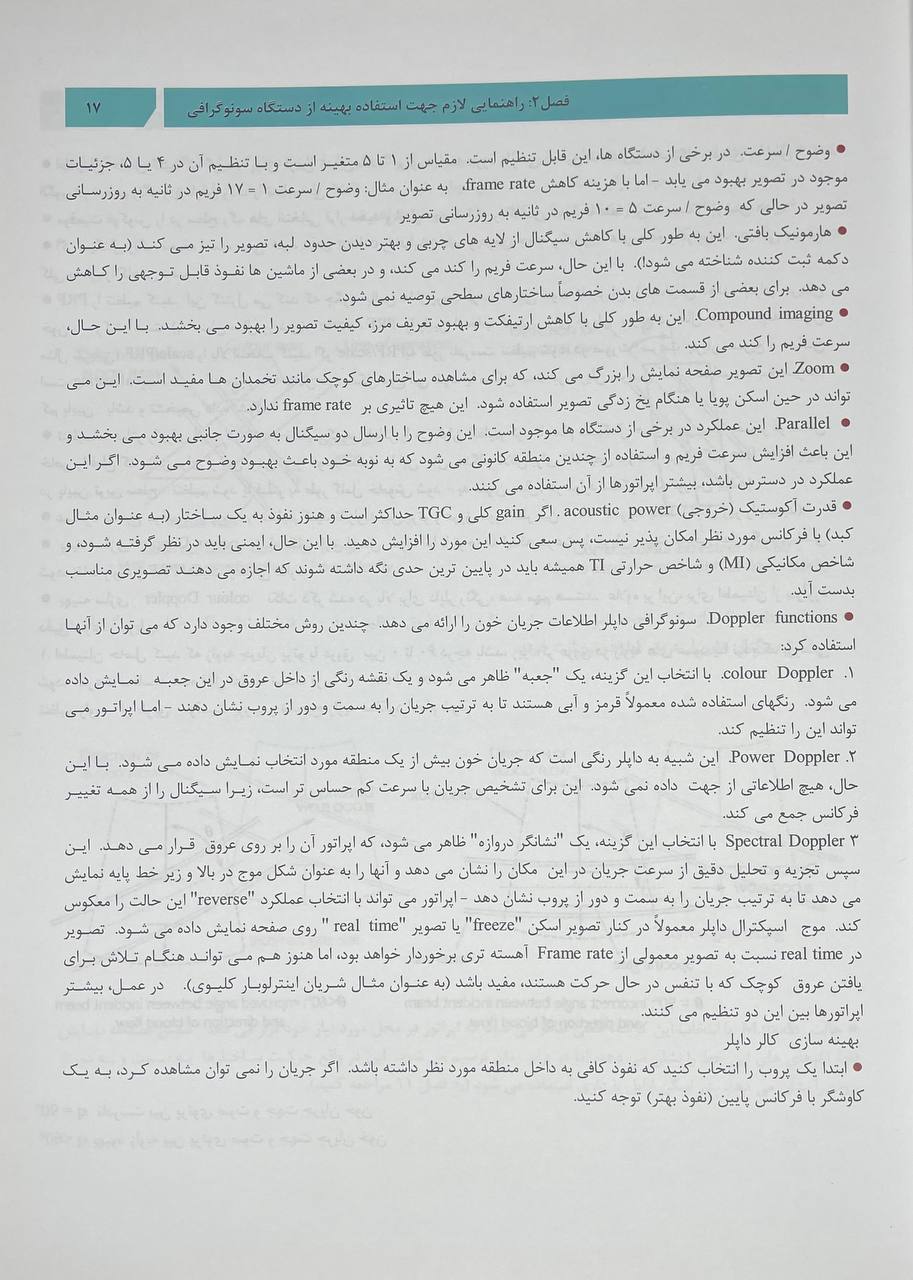 فصل۲: راهنمایی لازم جهت استفاده بهینه از دستگاه سونوگرافی
۱۷
● وضوح / سرعت. در برخی از دستگاه ها، این قابل تنظیم است. مقیاس از ۱ تا ۵ متغیر است و با تنظیم آن در ۴ یا ۵، جزئیات
موجود در تصویر بهبود می یابد - اما با هزینه کاهش frame rate، به عنوان مثال: وضوح / سرعت ۱ = ۱۷ فریم در ثانیه به روزرسانی
تصویر در حالی که وضوح / سرعت ۵ = ۱۰ فریم در ثانیه به روزرسانی تصویر
● هارمونیک بافتی. این به طور کلی با کاهش سیگنال از لایه های چربی و بهتر دیدن حدود لبه، تصویر را تیز می کند (به عنوان
دکمه ثبت کننده شناخته می شود!). با این حال، سرعت فریم را کند می کند، و در بعضی از ماشین ها نفوذ قابل توجهی را کاهش
می دهد. برای بعضی از قسمت های بدن خصوصاً ساختارهای سطحی توصیه نمی شود.
● Compound imaging. این به طور کلی با کاهش ارتیفکت و بهبود تعریف مرز، کیفیت تصویر را بهبود می بخشد. با این حال،
سرعت فریم را کند می کند.
● Zoom. این تصویر صفحه نمایش را بزرگ می کند، که برای مشاهده ساختارهای کوچک مانند تخمدان ها مفید است. این می
تواند در حین اسکن پویا یا هنگام یخ زدگی تصویر استفاده شود. این هیچ تاثیری بر frame rate ندارد.
● Parallel. این عملکرد در برخی از دستگاه ها موجود است. این وضوح را با ارسال دو سیگنال به صورت جانبی بهبود می بخشد و
این باعث افزایش سرعت فریم و استفاده از چندین منطقه کانونی می شود که به نوبه خود باعث بهبود وضوح می شود. اگر این
عملکرد در دسترس باشد، بیشتر اپراتورها از آن استفاده می کنند.
● قدرت آکوستیک (خروجی) acoustic power. اگر gain کلی و TGC حداکثر است و هنوز نفوذ به یک ساختار (به عنوان مثال
کبد) با فرکانس مورد نظر امکان پذیر نیست، پس سعی کنید این مورد را افزایش دهید. با این حال، ایمنی باید در نظر گرفته شود، و
شاخص مکانیکی (MI) و شاخص حرارتی TI همیشه باید در پایین ترین حدی نگه داشته شوند که اجازه می دهند تصویری مناسب
بدست آید.
● Doppler functions. سونوگرافی داپلر اطلاعات جریان خون را ارائه می دهد. چندین روش مختلف وجود دارد که می توان از آنها
استفاده کرد:
۱. colour Doppler. با انتخاب این گزینه، یک "جعبه" ظاهر می شود و یک نقشه رنگی از داخل عروق در این جعبه نمایش داده
می شود. رنگهای استفاده شده معمولاً قرمز و آبی هستند تا به ترتیب جریان را به سمت و دور از پروب نشان دهند - اما اپراتور می
تواند این را تنظیم کند.
۲. Power Doppler. این شبیه به داپلر رنگی است که جریان خون بیش از یک منطقه مورد انتخاب نمایش داده می شود. با این
حال، هیچ اطلاعاتی از جهت داده نمی شود. این برای تشخیص جریان با سرعت کم حساس تر است، زیرا سیگنال را از همه تغییر
فرکانس جمع می کند.
۳ Spectral Doppler با انتخاب این گزینه، یک "نشانگر دروازه" ظاهر می شود، که اپراتور آن را بر روی عروق قرار می دهد. این
سپس تجزیه و تحلیل دقیق از سرعت جریان در این مکان را نشان می دهد و آنها را به عنوان شکل موج در بالا و زیر خط پایه نمایش
می دهد تا به ترتیب جریان را به سمت و دور از پروب نشان دهد - اپراتور می تواند با انتخاب عملکرد "reverse" این حالت را معکوس
کند. موج اسپکترال داپلر معمولاً در کنار تصویر اسکن "freeze" یا تصویر "real time" روی صفحه نمایش داده می شود. تصویر
در real time نسبت به تصویر معمولی از Frame rate آهسته تری برخوردار خواهد بود، اما هنوز هم می تواند هنگام تلاش برای
یافتن عروق کوچک که با تنفس در حال حرکت هستند، مفید باشد (به عنوان مثال شریان اینترلوبار کلیوی). در عمل، بیشتر
اپراتورها بین این دو تنظیم می کنند.
بهینه سازی کالر داپلر
● ابتدا یک پروب را انتخاب کنید که نفوذ کافی به داخل منطقه مورد نظر داشته باشد. اگر جریان را نمی توان مشاهده کرد، به یک
کاوشگر با فرکانس پایین (نفوذ بهتر) توجه کنید.